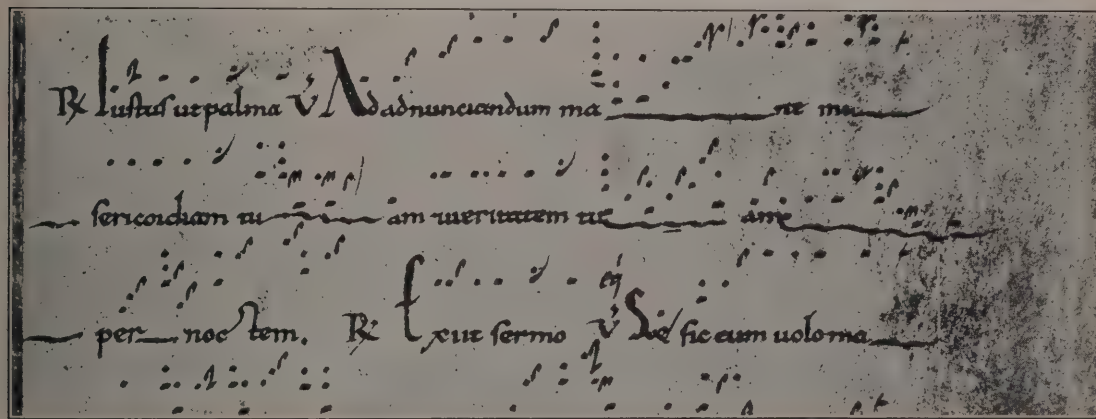 ℟ Iustus ut palma ℣ Ad adnunciandum ma ne mi
sericordiam tu am et ueritatem tu am
per noctem. ℟ Exiit sermo ℣ Sed sic eum uolo ma